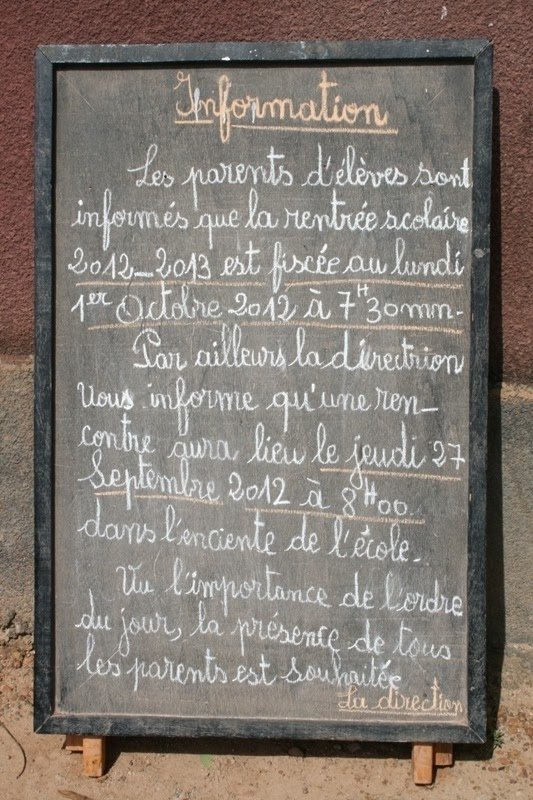 Information
Les parents d'élèves sont
informés que la rentrée scolaire
2012_2013 est fiscée au lundi
1er Octobre 2012 à 7H30mn.
Par ailleurs la directrion
Vous informe qu'une ren_
contre aura lieu le jeudi 27
Septembre 2012 à 8H00.
dans l'enciente de l'école.
Vu l'importance de l'ordre
du jour, la présence de tous
les parents est souhaitée
La direction